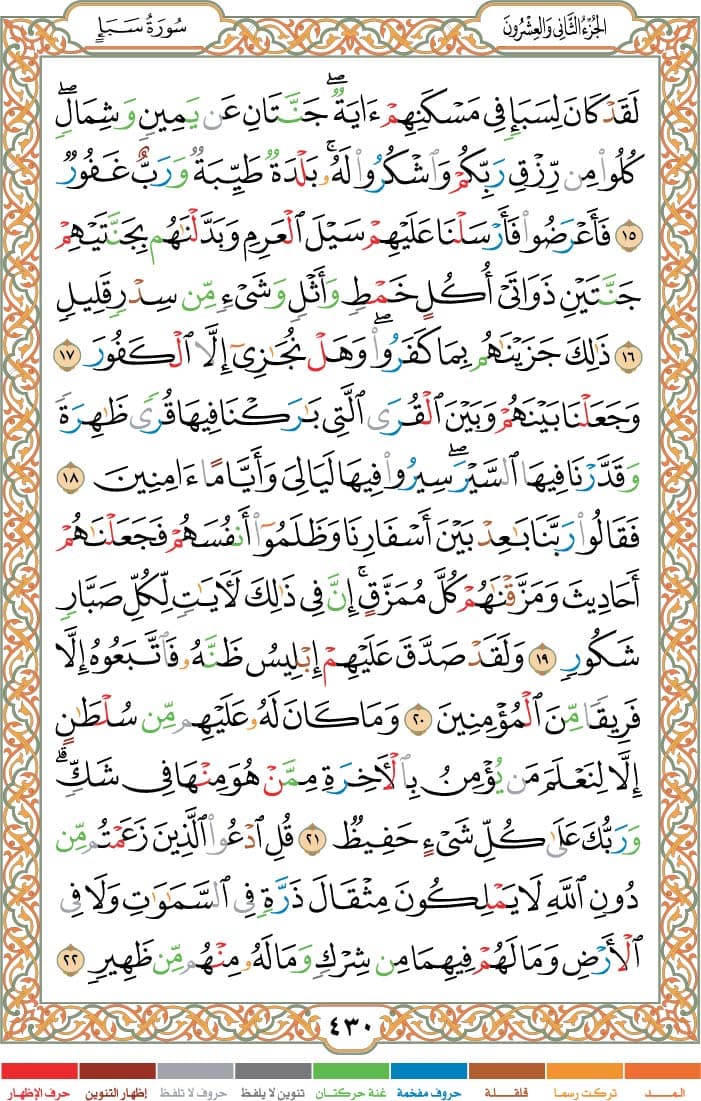 الجزء الثاني والعشرون
سورة سبإ
لَقَدْ كَانَ لِسَبَإٍ فِي مَسْكَنِهِمْ ءَايَةٌۖ جَنَّتَانِ عَن يَمِينٍ وَشِمَالٍۖ
كُلُوا۟ مِن رِّزْقِ رَبِّكُمْ وَٱشْكُرُوا۟ لَهُۥۚ بَلْدَةٌ طَيِّبَةٌ وَرَبٌّ غَفُورٌ
١٥ فَأَعْرَضُوا۟ فَأَرْسَلْنَا عَلَيْهِمْ سَيْلَ ٱلْعَرِمِ وَبَدَّلْنَٰهُم بِجَنَّتَيْهِمْ
جَنَّتَيْنِ ذَوَاتَىْ أُكُلٍ خَمْطٍ وَأَثْلٍ وَشَىْءٍ مِّن سِدْرٍ قَلِيلٍ
١٦ ذَٰلِكَ جَزَيْنَٰهُم بِمَا كَفَرُوا۟ۖ وَهَلْ نُجَٰزِىٓ إِلَّا ٱلْكَفُورَ ١٧
وَجَعَلْنَا بَيْنَهُمْ وَبَيْنَ ٱلْقُرَى ٱلَّتِى بَٰرَكْنَا فِيهَا قُرًى ظَٰهِرَةً
وَقَدَّرْنَا فِيهَا ٱلسَّيْرَۖ سِيرُوا۟ فِيهَا لَيَالِىَ وَأَيَّامًا ءَامِنِينَ ١٨
فَقَالُوا۟ رَبَّنَا بَٰعِدْ بَيْنَ أَسْفَارِنَا وَظَلَمُوٓا۟ أَنفُسَهُمْ فَجَعَلْنَٰهُمْ
أَحَادِيثَ وَمَزَّقْنَٰهُمْ كُلَّ مُمَزَّقٍۚ إِنَّ فِى ذَٰلِكَ لَءَايَٰتٍ لِّكُلِّ صَبَّارٍ
شَكُورٍ ١٩ وَلَقَدْ صَدَّقَ عَلَيْهِمْ إِبْلِيسُ ظَنَّهُۥ فَٱتَّبَعُوهُ إِلَّا
فَرِيقًا مِّنَ ٱلْمُؤْمِنِينَ ٢٠ وَمَا كَانَ لَهُۥ عَلَيْهِم مِّن سُلْطَٰنٍ
إِلَّا لِنَعْلَمَ مَن يُؤْمِنُ بِٱلْءَاخِرَةِ مِمَّنْ هُوَ مِنْهَا فِى شَكٍّۗ
وَرَبُّكَ عَلَىٰ كُلِّ شَىْءٍ حَفِيظٌ ٢١ قُلِ ٱدْعُوا۟ ٱلَّذِينَ زَعَمْتُم مِّن
دُونِ ٱللَّهِ لَا يَمْلِكُونَ مِثْقَالَ ذَرَّةٍ فِى ٱلسَّمَٰوَٰتِ وَلَا فِى
ٱلْأَرْضِ وَمَا لَهُمْ فِيهِمَا مِن شِرْكٍ وَمَا لَهُۥ مِنْهُم مِّن ظَهِيرٍ ٢٢
٤٣٠
المــد تركت رسما قلقلة حروف مفخمة غنة حركتان تنوين لا يلفظ حروف لا تلفظ إظهار التنوين حرف الإظهار